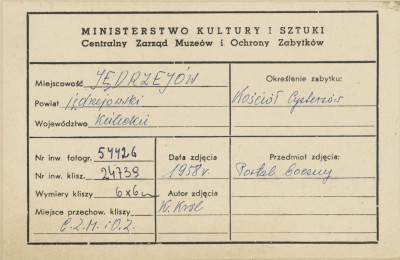 MINISTERSTWO KULTURY I SZTUKI
Centralny Zarząd Muzeów i Ochrony Zabytków
Miejscowość JĘDRZEJÓW
Powiat Jędrzejowski
Województwo Kieleckie
Określenie zabytku:
Kościół Cystersów
Nr inw. fotogr. 54426
Nr inw. klisz. 24739
Wymiary kliszy 6x6
Miejsce przechow. kliszy
C.Z.M. i O.Z.
Data zdjęcia
1958 r.
Autor zdjęcia
K. Krol
Przedmiot zdjęcia:
Portal boczny